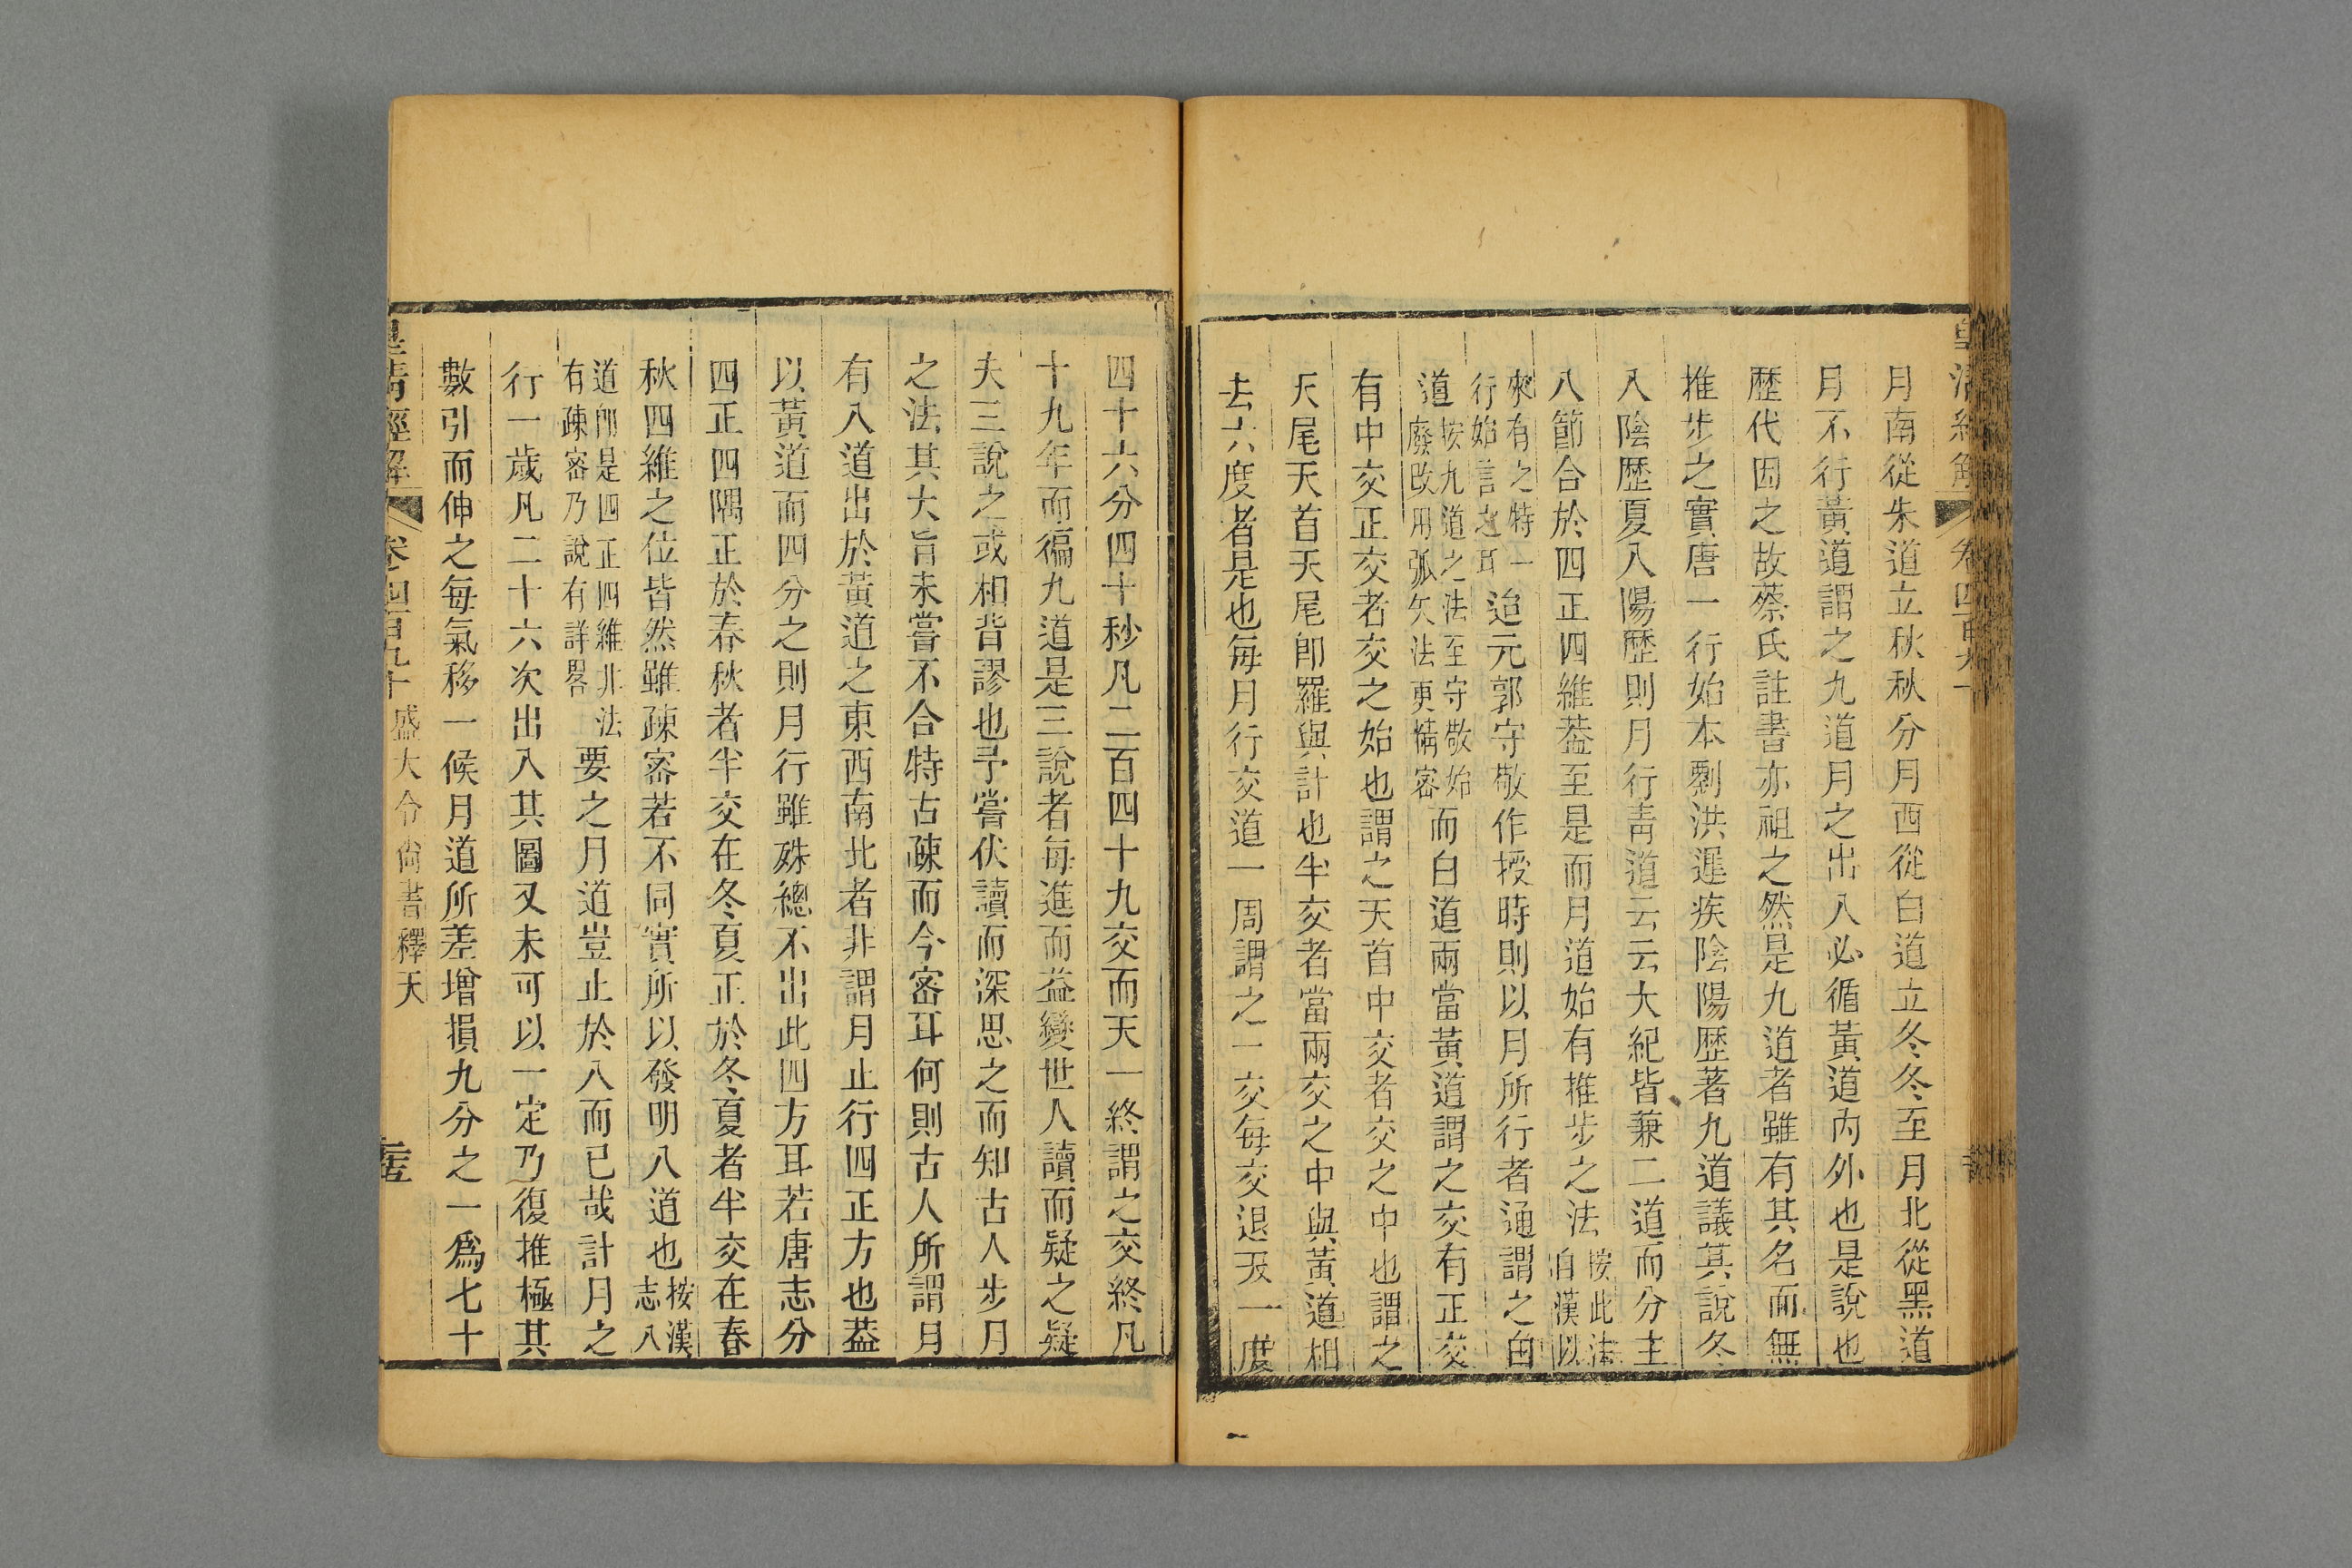 月南從朱道立秋秋分月西從白道立冬冬至月北從黑道
月不行黃道謂之九道月之出入必循黃道內外也是說也
歷代因之故蔡氏註書亦祖之然是九道者雖有其名而無
推步之實唐一行始本劉洪遲疾陰陽歷著九道議其說冬
入陰歷夏入陽歷則月行青道云云大紀皆兼二道而分主
八節合於四正四維葢至是而月道始有推步之法按此法自漢以
來有之特一行始言之耳迨元郭守敬作授時則以月所行者通謂之白
道按九道之法至守敬始廢改用弧矢法更精密而白道兩當黃道謂之交有正交
有中交正交者交之始也謂之天首中交者交之中也謂之
天尾天首天尾卽羅與計也半交者當兩交之中與黃道相
去六度者是也每月行交道一周謂之一交每交退天一度
四十六分四十秒凡二百四十九交而天一終謂之交終凡
十九年而徧九道是三說者每進而益變世人讀而疑之疑
夫三說之或相背謬也予嘗伏讀而深思之而知古人步月
之法其大旨未嘗不合特古疎而今密耳何則古人所謂月
有入道出於黃道之東西南北者非謂月止行四正方也葢
以黃道而四分之則月行雖殊總不出此四方耳若唐志分
四正四隅正於春秋者半交在冬夏正於冬夏者半交在春
秋四維之位皆然雖疎密若不同實所以發明八道也按漢志八
道卽是四正四維非法右疎密乃說有詳畧要之月道豈止於八而已哉計月之
行一歲凡二十六次出入其圖又未可以一定乃復推極其
數引而伸之每氣移一候月道所差增損九分之一爲七十
皇清經解 卷四百九十 盛大令尚書釋天